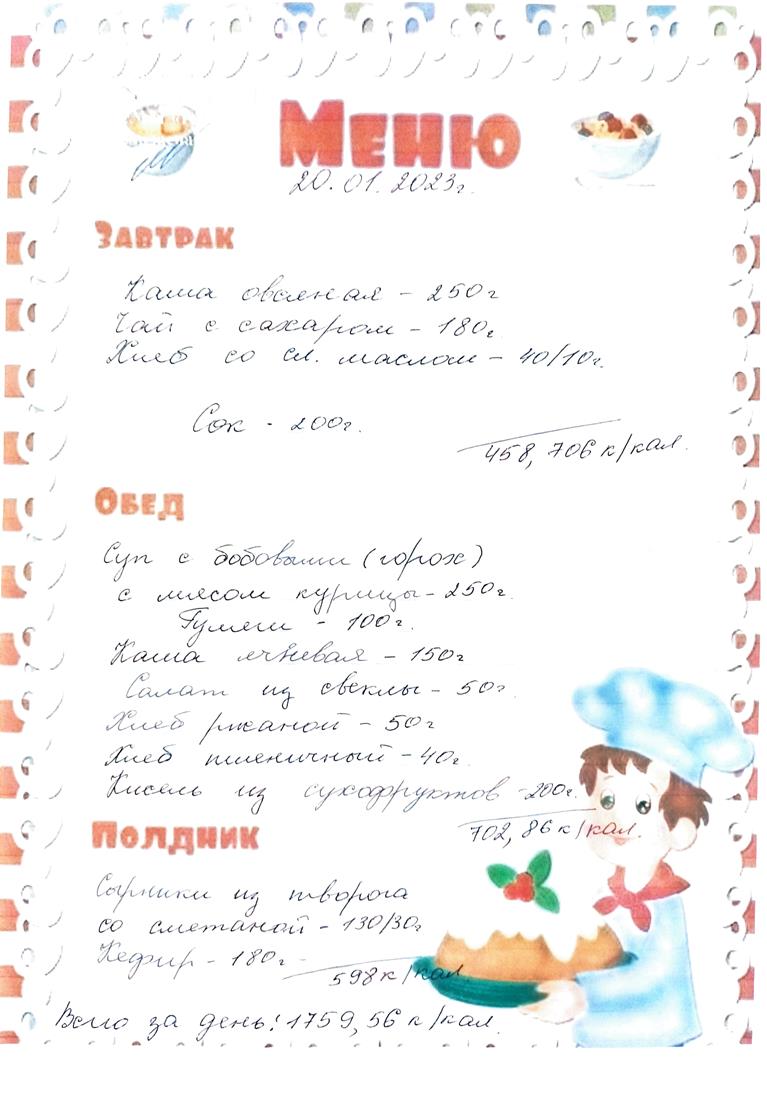 Меню
20.01.2023г.
Завтрак
Каша овсяная - 250г
Чай с сахаром - 180г
Хлеб со сл. маслом - 40/10г.
Сок - 200г.
458,706 к/кал.
Обед
Суп с бобовыми (горох)
с мясом курицы - 250г.
Гуляш - 100г.
Каша ячневая - 150г
Салат из свеклы - 50г.
Хлеб ржаной - 50г
Хлеб пшеничный - 40г.
Кисель из сухофруктов - 200г.
702,86 к/кал.
Полдник
Сырники из творога
со сметаной - 130/30г
Кефир - 180г -
598 к/кал.
Всего за день: 1759,56 к/кал.